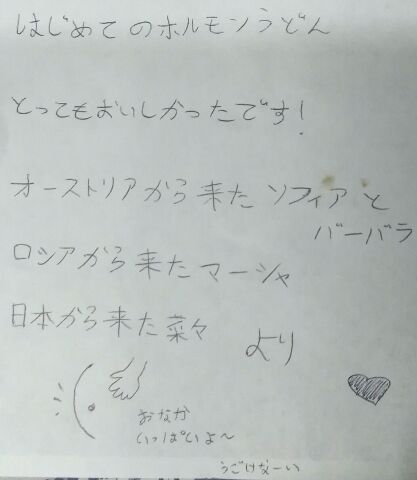 はじめてのホルモンうどん
とってもおいしかったです!
オーストリアから来たソフィアと
バーバラ
ロシアから来たマーシャ
日本から来た菜々
より
おなか
いっぱいよ〜
うごけなーい